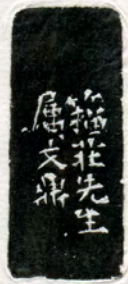 籀莊先生
属文鼎